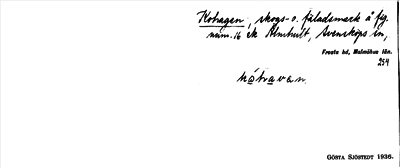 Kohagen, skogs- o. fäladsmark å fig.
num. 16 ek Almhult, Svensköps sn,
Frosta hd, Malmöhus län.
254
kȯhavan.
GÖSTA SJÖSTEDT 1936.